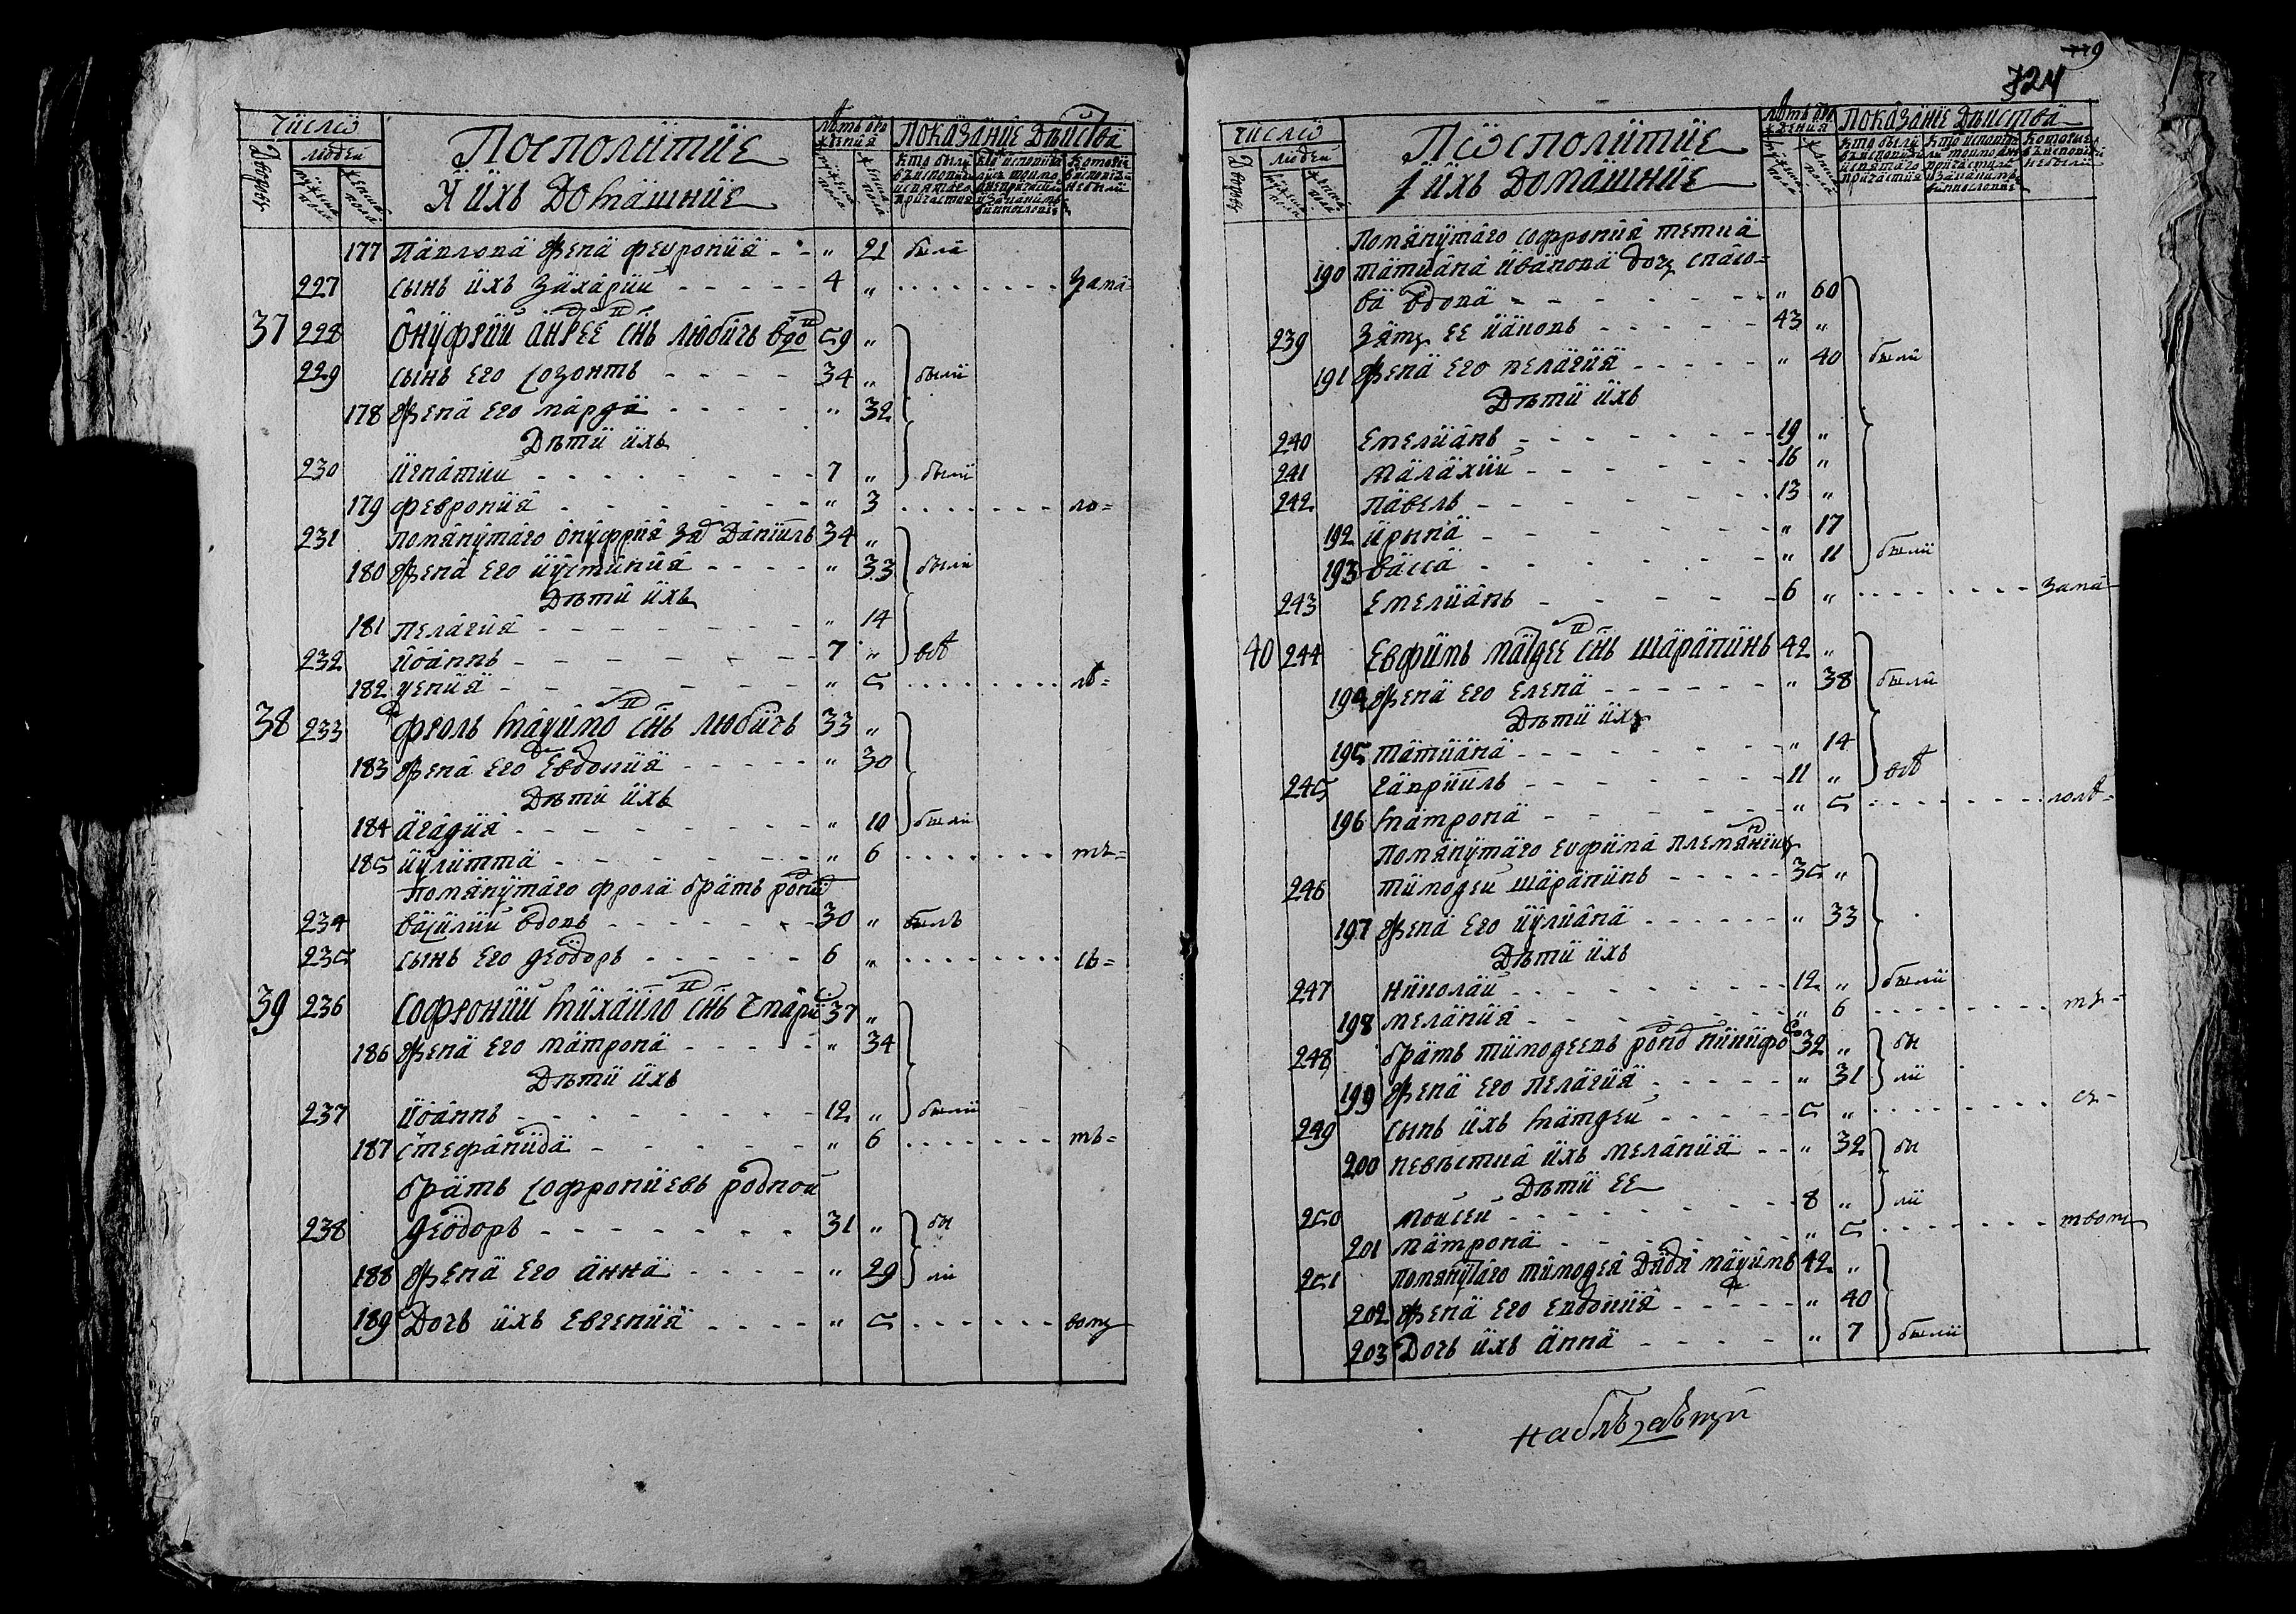 Число
Дворовъ
людей
мужеска пола
женска пола
Посполитие
И ихъ домашние
лѣтъ от рождения
мужеска пола
женска пола
Показание действа
177 Павлова жена феврония - - „ 21 была
227 сынъ ихъ захарий - - - - - 4 „ . . . . . . . . зама=
37 228 Онуфрий андрее снъ любичъ вдо 59 „
229 сынъ его созонтъ - - - - 34 „ были
178 жена его марфа - - - - „ 32
Дѣти ихъ
230 игнатий - - - - - - - - 7 „ были
179 феврония - - - - - - - „ 3 . . . . . . . ло=
231 помянутаго онуфрия за Данїилъ 34 „
180 жена его иустиния - - - - „ 33 были
Дѣти ихъ
181 пелагия - - - - - - - „ 14
232 иоаннъ - - - - - - - 7 „ всѣ
182 ксения - - - - - - - „ 5 . . . . . . . . лѣ=
38 233 фролъ маѯимо снъ любичъ 33 „
183 жена его Евдокия - - - - - „ 30
Дѣти ихъ
184 агафия - - - - - - - - „ 10 были
185 иулитта - - - - - - - „ 6 . . . . . . . тъ=
помянутаго фрола братъ родни
234 василий вдовъ - - - - - - - 30 „ былъ
235 сынъ его феодоръ - - - - - - 6 „ . . . . . . . . съ=
39 236 Софроний михайло снъ 37 „
186 жена его матрона - - - - - „ 34
Дѣти ихъ
237 иоаннъ - - - - - - - - 12 „ были
187 стефанида - - - - - - „ 6 . . . . . . . тъ=
братъ софрониевъ родной
238 феодоръ - - - - - - - - 31 „ бы
188 жена его анна - - - - „ 29 ли
189 Дочъ ихъ евгения - - - - „ 5 . . . . . . вомъ
724
Число
Дворовъ
людей
мужеска пола
женска пола
Посполитие
И ихъ домашние
лѣтъ от рождения
мужеска пола
женска пола
Показание действа
помянутаго софрония тетка
190 татиана иванова дочъ спасо=
ва вдова - - - - - - - - „ 60
239 зять ее иаковъ - - - - - 43 „
191 жена его пелагия - - - - - „ 40 были
Дѣти ихъ
240 емелианъ - - - - - - - - 19 „
241 малахий - - - - - - - 16 „
242 павелъ - - - - - - - - 13 „
192 ирына - - - - - - - „ 17
193 васса - - - - - - - „ 11 были
243 емелианъ - - - - - - 6 „ . . . . . . . зама
40 244 Евфимъ матфее снъ шарапинъ 42 „
194 жена его елена - - - - - - „ 38 были
Дѣти ихъ
195 татиана - - - - - - - - „ 14
245 гавриилъ - - - - - - - 11 „ всѣ
196 матрона - - - - - - - „ 5 . . . . . . . лолѣ=
помянутаго евфима племянникъ
246 тимофей шарапинъ - - - - - 35 „
197 жена его иулиана - - - - - - „ 33
Дѣти ихъ
247 николай - - - - - - - - - 12 „ были
198 мелания - - - - - - - - „ 6 . . . . . . . тъ=
248 братъ тимофеевъ родно никифо 32 „ бы
199 жена его пелагия - - - - - „ 31 ли
249 сынъ ихъ матфей - - - - - 5 „ . . . . . . . съ-
200 невѣстка ихъ мелания - - „ 32 бы
Дѣти ее
250 моисей - - - - - - - - - 8 „ ли
201 матрона - - - - - - - - „ 5 . . . . . . . твомъ
251 помянутаго тимофея дядя маѯимъ 42 „
202 жена его евдокия - - - - - „ 40
203 Дочъ ихъ анна - - - - - „ 7 были